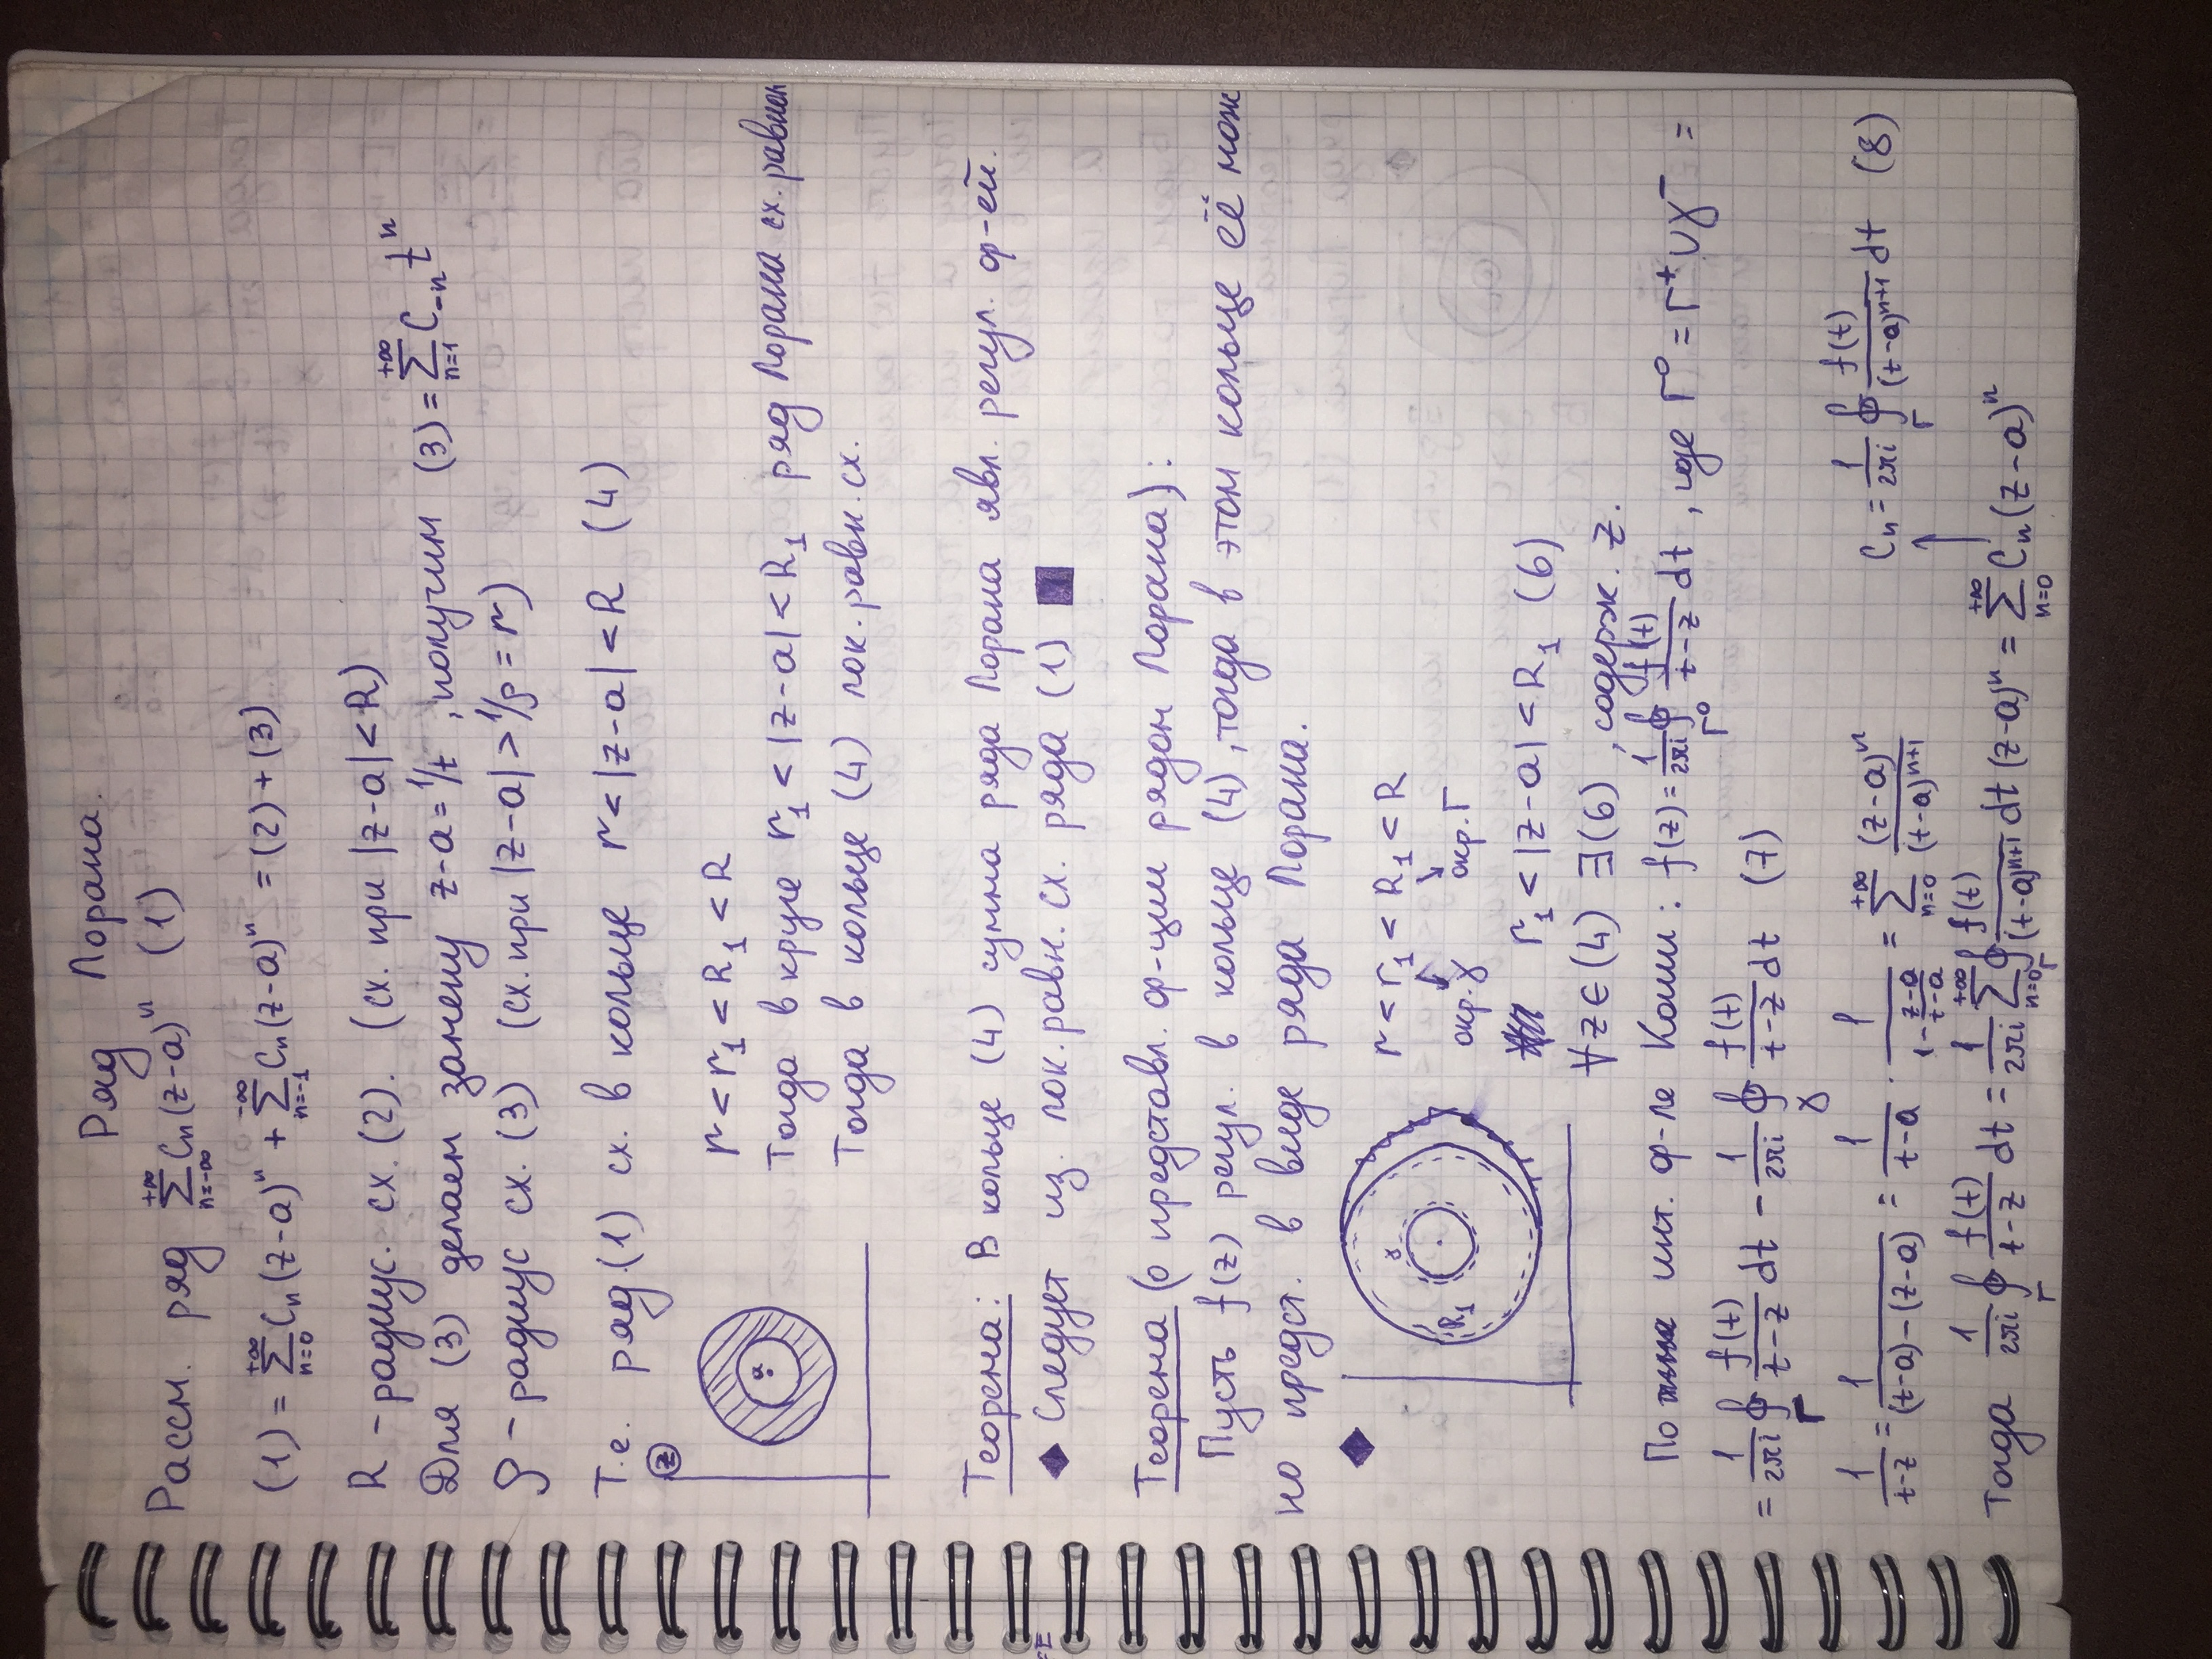 Ряд Лорана.
Рассм. ряд $\sum_{n=-\infty}^{+\infty} C_n (z-a)^n$ (1)
(1) = $\sum_{n=0}^{+\infty} C_n (z-a)^n + \sum_{n=-1}^{-\infty} C_n (z-a)^n$ = (2) + (3)
R - радиус. сх. (2). (сх. при |z-a| < R)
Для (3) делаем замену z-a = 1/t , получим (3) = $\sum_{n=1}^{+\infty} C_{-n} t^n$
ρ - радиус сх. (3) (сх. при |z-a| > 1/ρ = r)
Т.е. ряд (1) сх. в кольце r < |z-a| < R (4)
z
a
r < r₁ < R₁ < R
Тогда в круге r₁ < |z-a| < R₁ ряд Лорана сх. равном
Тогда в кольце (4) лок. равн. сх.
Теорема: В кольце (4) сумма ряда Лорана явл. регул. ф-ей.
◆ Следует из. лок. равн. сх. ряда (1) ■
Теорема (о представл. ф-ции рядом Лорана):
Пусть f(z) регул. в кольце (4), тогда в этом кольце её мож
но предст. в виде ряда Лорана.
◆
γ
R₁
r < r₁ < R₁ < R
окр. γ окр. Г
r₁ < |z-a| < R₁ (6)
∀z ∈ (4) ∃(6) , содерж. z.
По инт. ф-ле Коши: $f(z) = \frac{1}{2\pi i} \oint_{Г^0} \frac{f(t)}{t-z} dt$ , где $Г^0 = Г^+ \cup γ^-$ =
= $\frac{1}{2\pi i} \oint_{Г} \frac{f(t)}{t-z} dt - \frac{1}{2\pi i} \oint_{γ} \frac{f(t)}{t-z} dt$ (7)
$\frac{1}{t-z} = \frac{1}{(t-a)-(z-a)} = \frac{1}{t-a} \cdot \frac{1}{1-\frac{z-a}{t-a}} = \sum_{n=0}^{+\infty} \frac{(z-a)^n}{(t-a)^{n+1}}$ $C_n = \frac{1}{2\pi i} \oint_{Г} \frac{f(t)}{(t-a)^{n+1}} dt$ (8)
Тогда $\frac{1}{2\pi i} \oint_{Г} \frac{f(t)}{t-z} dt = \frac{1}{2\pi i} \sum_{n=0}^{+\infty} \oint_{Г} \frac{f(t)}{(t-a)^{n+1}} dt (z-a)^n = \sum_{n=0}^{+\infty} C_n (z-a)^n$